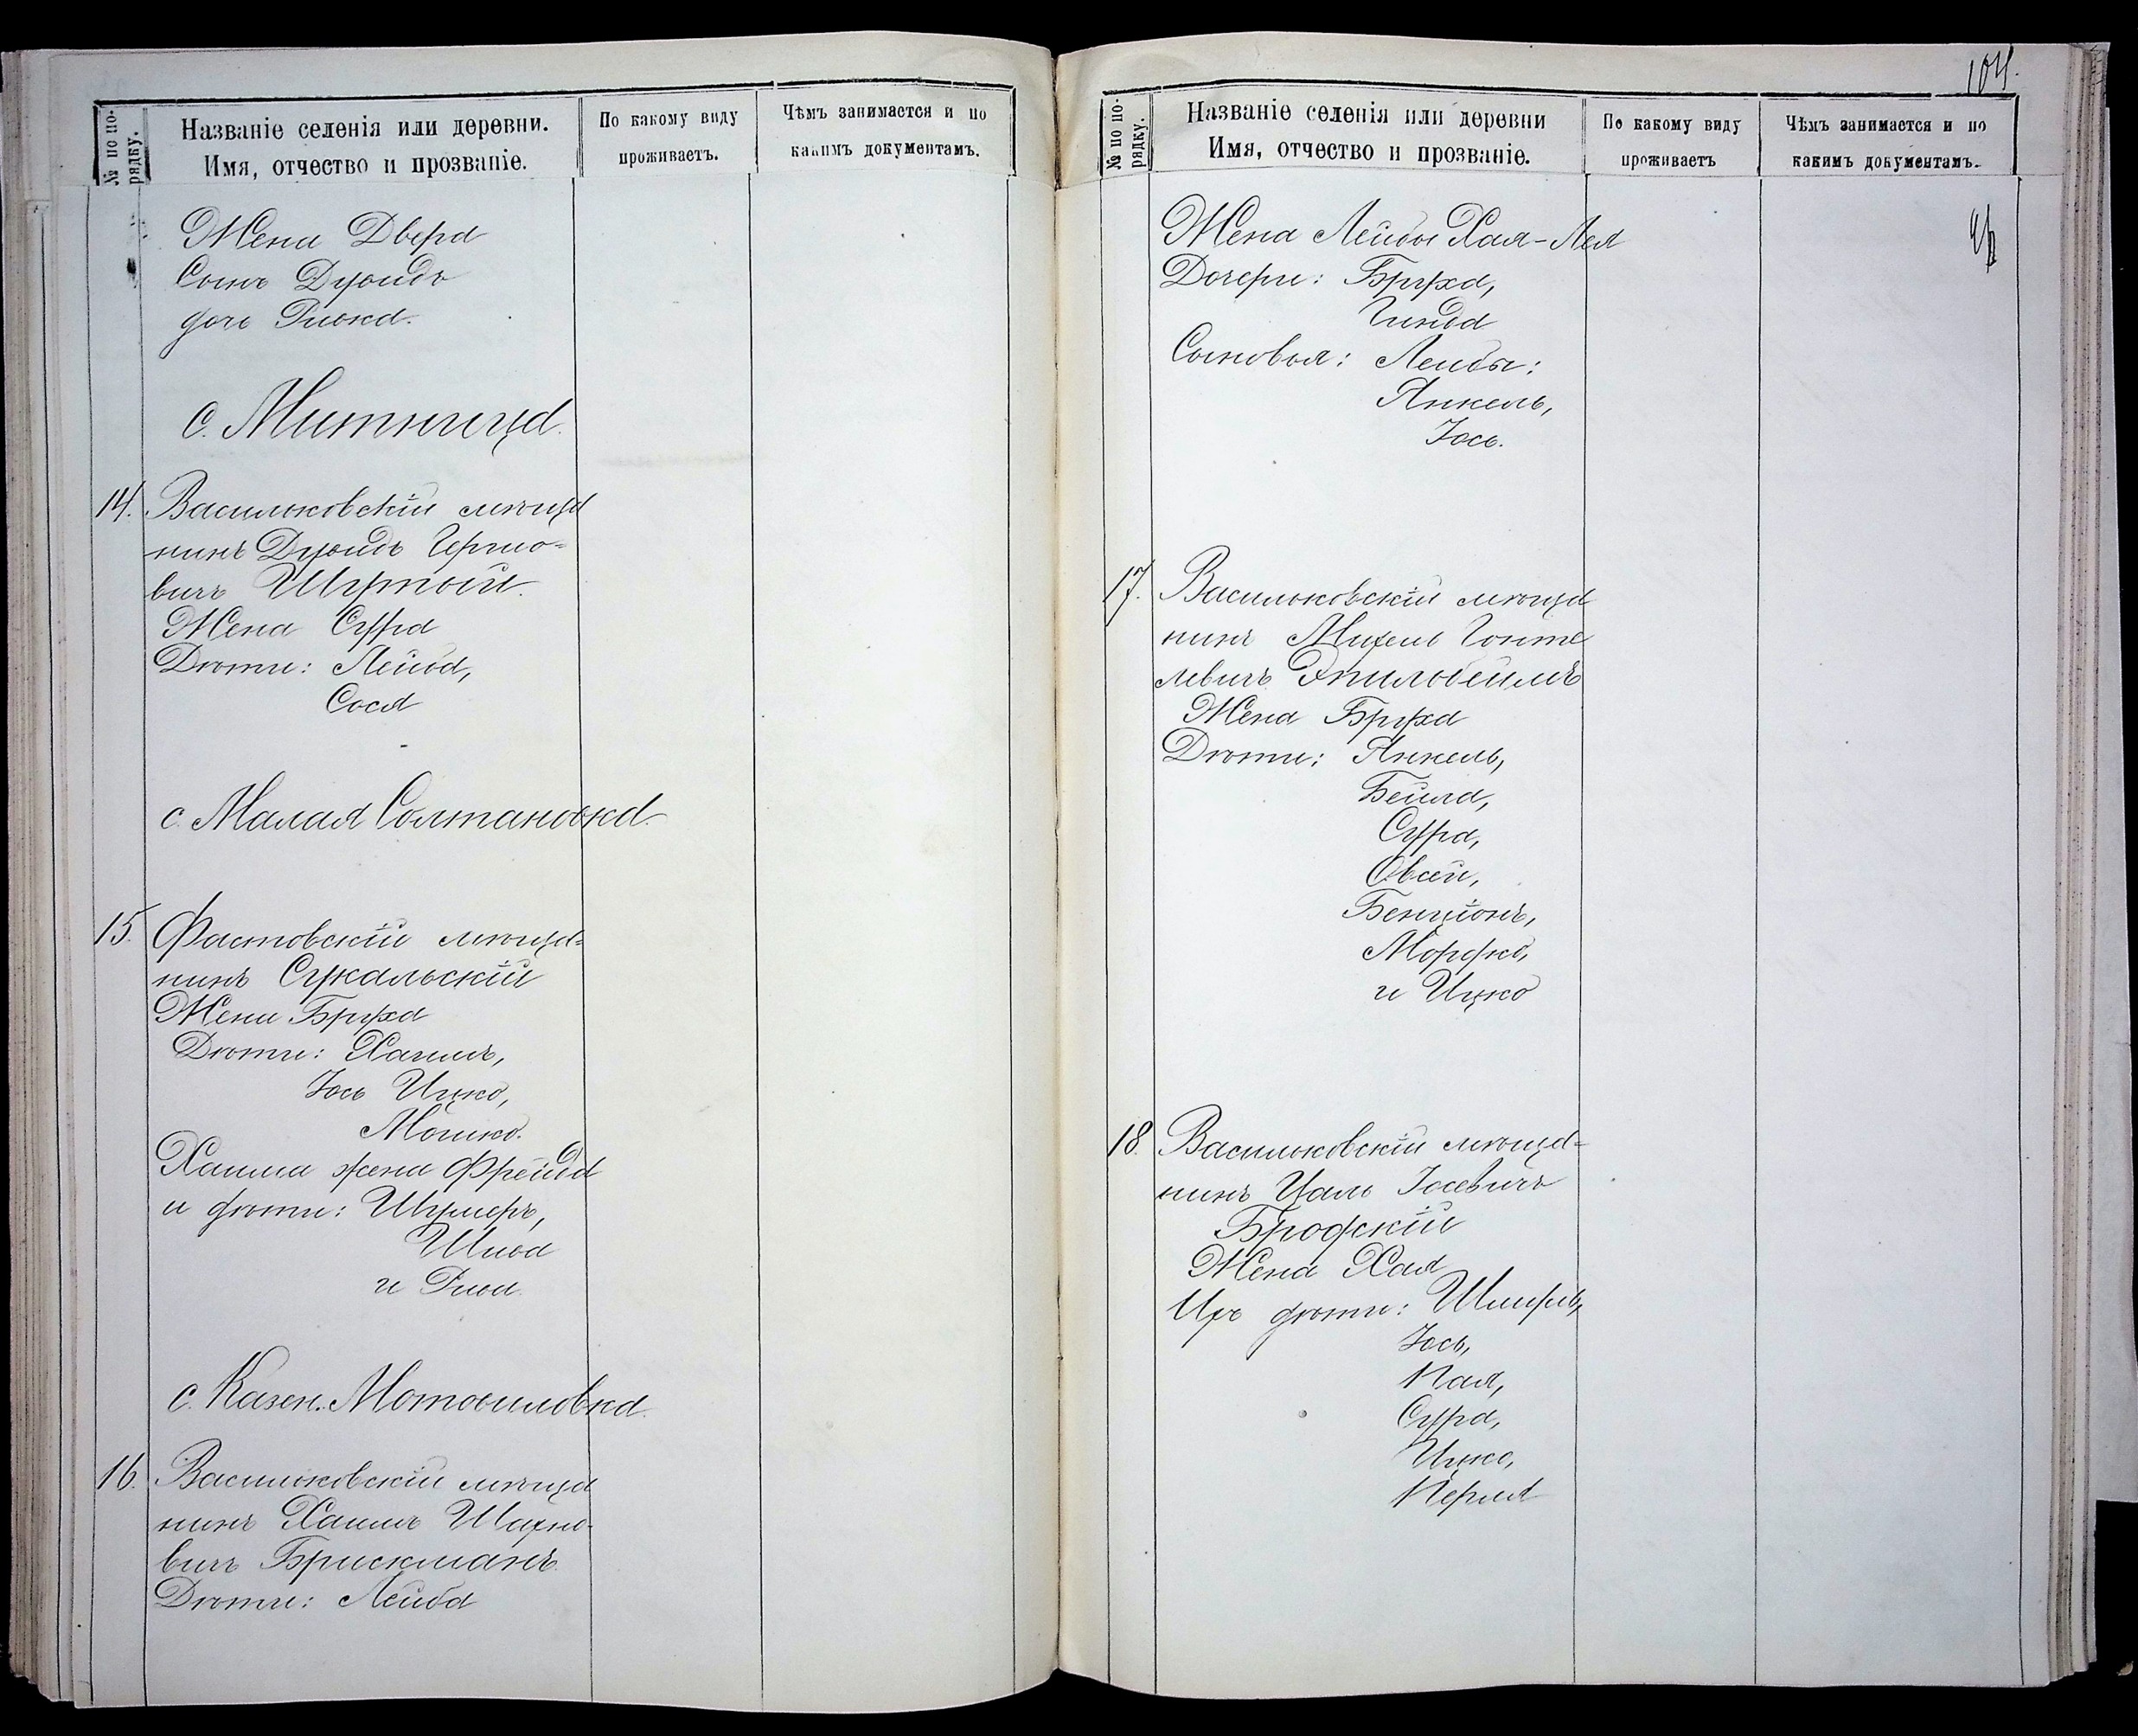 № по по-
рядку.
Названіе селенія или деревни.
Имя, отчество и прозваніе.
По какому виду
проживаетъ.
Чѣмъ занимается и по
какимъ документамъ.
Жена Двера
Сынъ Дувидъ
дочь Ривка.
с. Митница.
14. Васильковскій мѣща
нинъ Дувидъ Гершо=
вичъ Шустый.
Жена Сура
Дѣти: Лейба,
Сося
с. Малая Солтановка.
15. Фастовскій мѣща=
нинъ Сукальскій
Жена Бруха
Дѣти: Хаимъ,
Іось Ицко,
Мошко.
Хаима жена Фрейда
и дѣти: Шулимъ,
Шива
и Рива.
с. Казен. Мотовиловка.
16. Васильковскій мѣща
нинъ Хаимъ Шахно-
вичъ Брискманъ.
Дѣти: Лейба
104.
№ по по-
рядку.
Названіе селенія или деревни
Имя, отчество и прозваніе.
По какому виду
проживаетъ
Чѣмъ занимается и по
какимъ документамъ.
Жена Лейбы Хая-Лея
Дочери: Бруха,
Гинда
Сыновья: Лейбы:
Янкель,
Іось.
17. Васильковскій мѣща
нинъ Михель
левичъ
Жена Бруха
Дѣти: Янкель,
Бейла,
Сура,
Овсей,
Бенціонъ,
Мордко,
и Ицко
18. Васильковскій мѣща=
нинъ Цаль Іосевичъ
Бродскій
Жена Хая
Ихъ дѣти:
Іось,
Пая,
Сура,
Ицко,
Перля